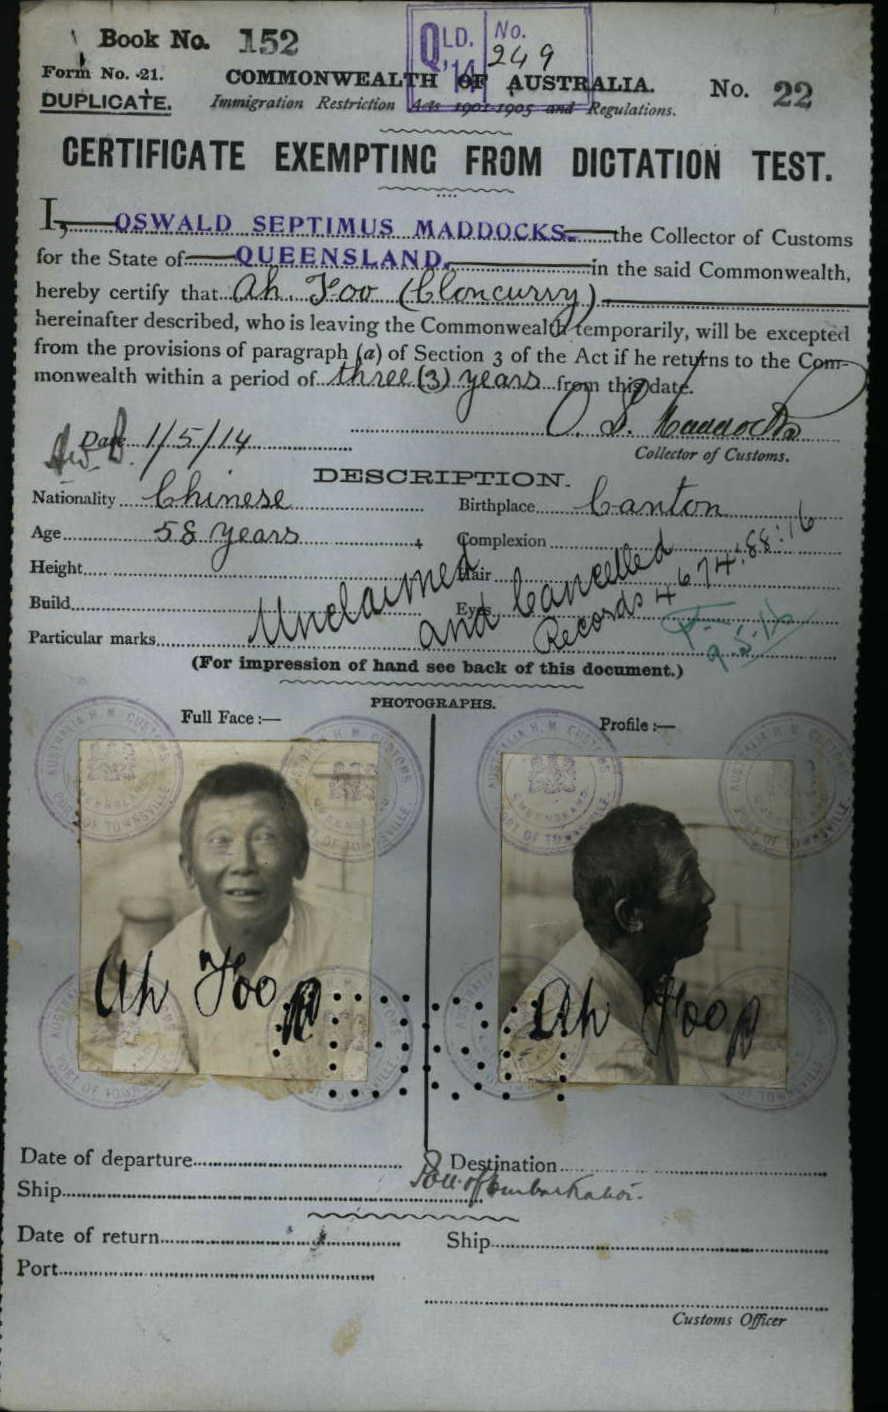 Book No. 152
QLD. No.
249
Form No. 21.
COMMONWEALTH OF AUSTRALIA.
No. 22
DUPLICATE.
Immigration Restriction Acts 1901-1905 and Regulations.
CERTIFICATE EXEMPTING FROM DICTATION TEST.
I, OSWALD SEPTIMUS MADDOCKS. the Collector of Customs
for the State of QUEENSLAND. in the said Commonwealth,
hereby certify that Ah Foo (Cloncurry)
hereinafter described, who is leaving the Commonwealth temporarily, will be excepted
from the provisions of paragraph (a) of Section 3 of the Act if he returns to the Com-
monwealth within a period of three (3) years from this date.
O. S. Maddocks
Date 1/5/14
Collector of Customs.
DESCRIPTION.
Nationality Chinese Birthplace Canton
Age 58 years Complexion
Height Hair
Build Eyes
Particular marks
Unclaimed
and Cancelled
Records 4674:88:16
9.5.16
(For impression of hand see back of this document.)
PHOTOGRAPHS.
Full Face :— Profile :—
AUSTRALIA H. M. CUSTOMS
QUEENSLAND
PORT OF TOWNSVILLE
AUSTRALIA H. M. CUSTOMS
QUEENSLAND
PORT OF TOWNSVILLE
AUSTRALIA H. M. CUSTOMS
QUEENSLAND
PORT OF TOWNSVILLE
AUSTRALIA H. M. CUSTOMS
QUEENSLAND
PORT OF TOWNSVILLE
Ah Foo
Ah Foo
Date of departure Destination
Ship
Port of Embarkation.
Date of return Ship
Port
Customs Officer